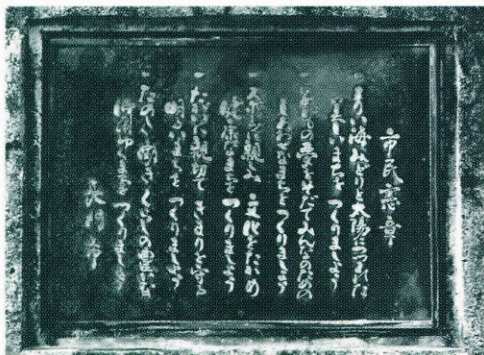 市民憲章
一 きよい海 みどりと太陽につつまれた
美しいまちを つくりましょう
一 の夢をそだて みんな
しあわせなまちを つくりましょう
一 スポーツに親しみ 文化をたかめ
健康なまちを つくりましょう
一 たがいに親切で きまりを守る
明るいまちを つくりましょう
一 たのしく働き くらしの豊かな
ゆくまちを つくりましょう
長門市